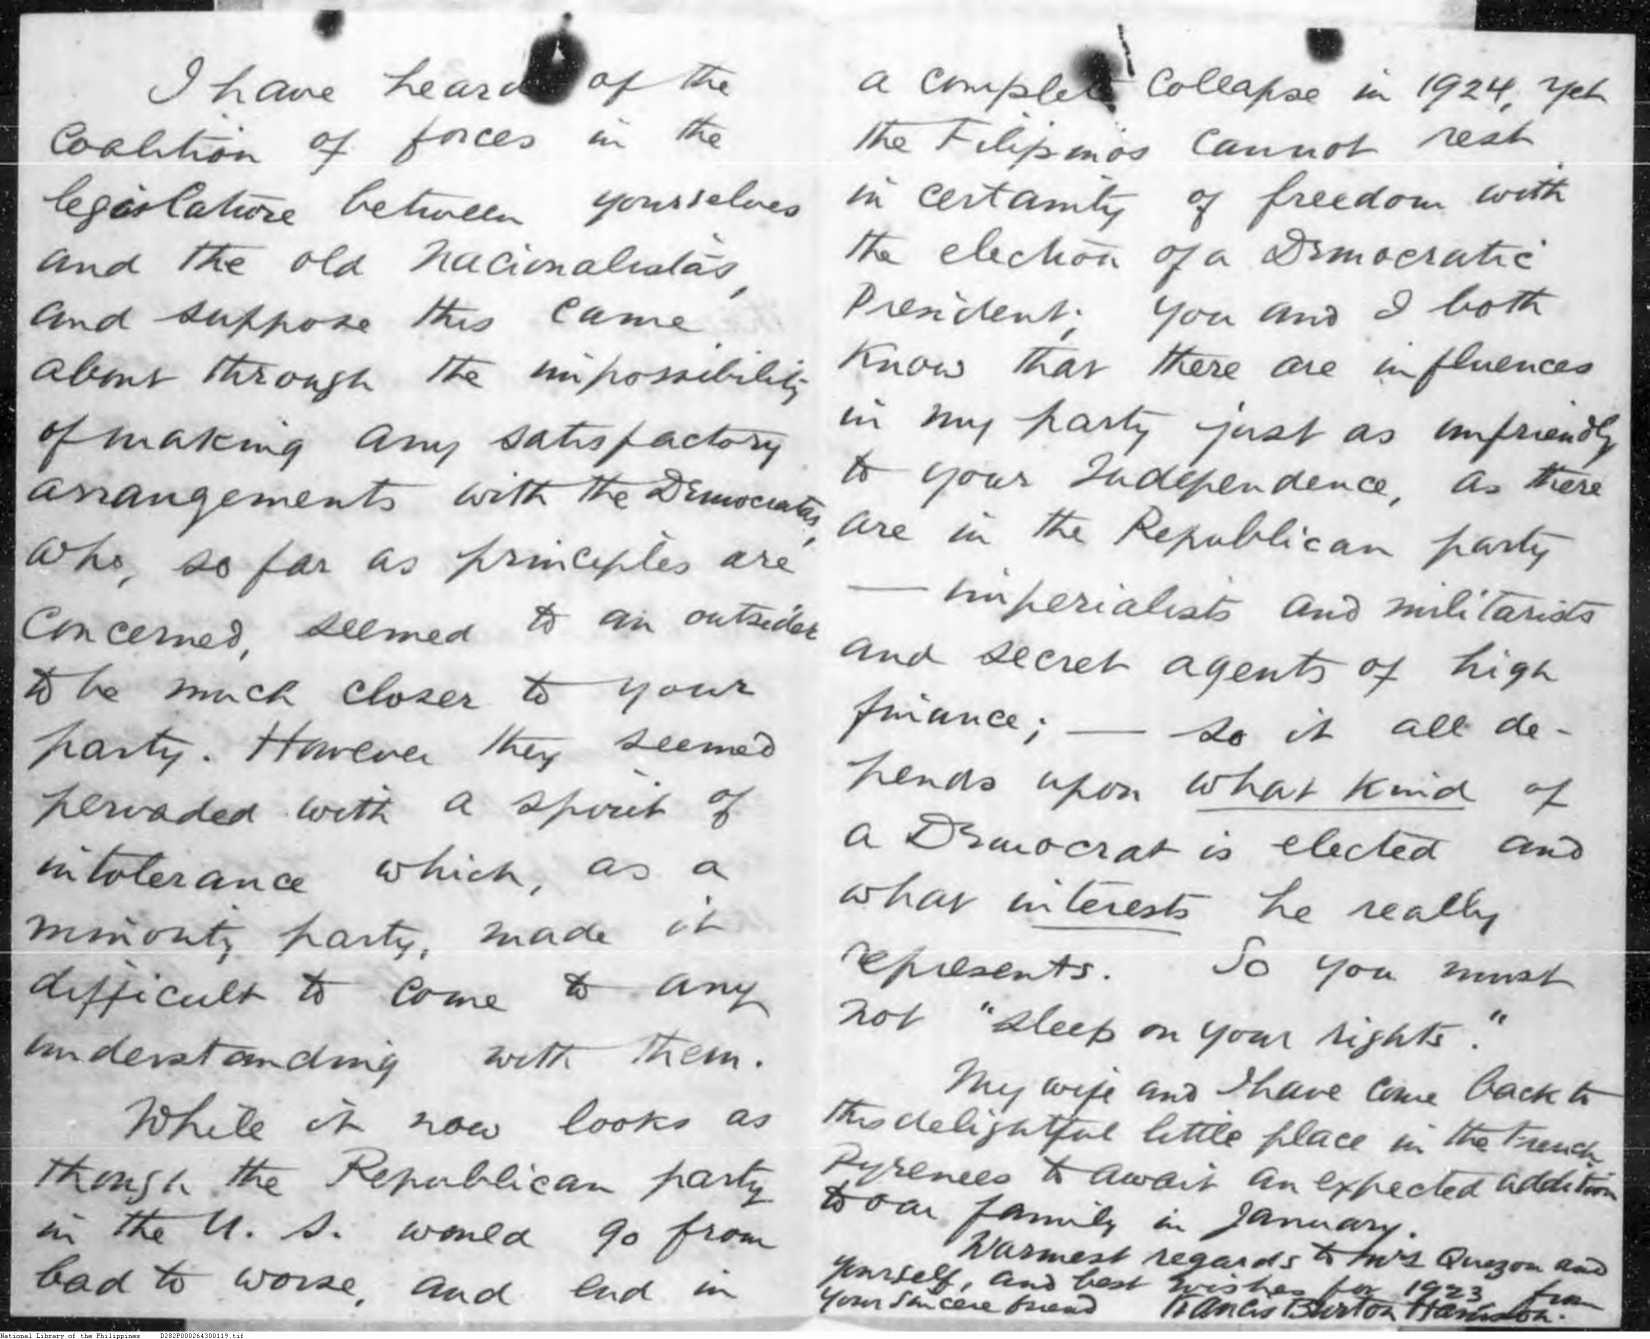 I have heard of the
Coalition of forces in the
legislature between yourselves
and the old Nacionalistas,
and suppose this came
about through the impossibility
of making any satisfactory
arrangements with the Democratas,
who, so far as principles are
concerned, seemed to an outsider
to be much closer to your
party. However they seemed
pervaded with a spirit of
intolerance which, as a
minority party, made it
difficult to come to any
understanding with them.
While it now looks as
though the Republican party
in the U. S. would go from
bad to worse, and end in
a complete collapse in 1924, yet
the Filipinos cannot rest
in certainty of freedom with
the election of a Democratic
President; you and I both
know that there are influences
in my party just as unfriendly
to your Independence, as there
are in the Republican party
— imperialists and militarists
and secret agents of high
finance; — so it all de-
pends upon what kind of
a Democrat is elected and
what interests he really
represents. So you must
not "sleep on your rights."
My wife and I have come back to
this delightful little place in the French
Pyrenees to await an expected addition
to our family in January.
Warmest regards to Mrs Quezon and
yourself, and best wishes for 1923 from
your sincere friend Francis Burton Harrison.
National Library of the Philippines D282P000264300119.tif